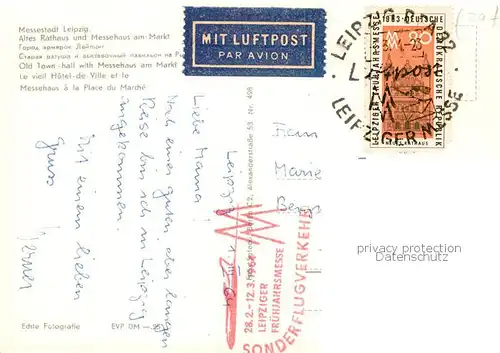 Messestadt Leipzig
Altes Rathaus und Messehaus am Markt
Город ярмарок Лейпциг
Старая ратуша и выставочный павильон на
Old Town-hall with Messehaus am Markt
Le vieil Hôtel-de-Ville et le
Messehaus à la Place du Marché
MIT LUFTPOST
PAR AVION
Leipzig
1. III 64
Liebe Mama
Nach einer guten, aber langen
Reise bin ich in Leipzig
angekommen.
Mit einem lieben
Gruss
Werner
Echte Fotografie
EVP DM
C 2, Alexanderstraße 53 Nr. 498
Frau
Marie
LEIPZIG
LEIPZIGER MESSE
1963 DEUTSCHE
DEMOKRATISCHE REPUBLIK
LEIPZIGER FRÜHJAHRSMESSE
ALTES RATHAUS
28.2.-12.3.1964
LEIPZIGER
FRÜHJAHRSMESSE
SONDERFLUGVERKEHR
privacy protection
Datenschutz